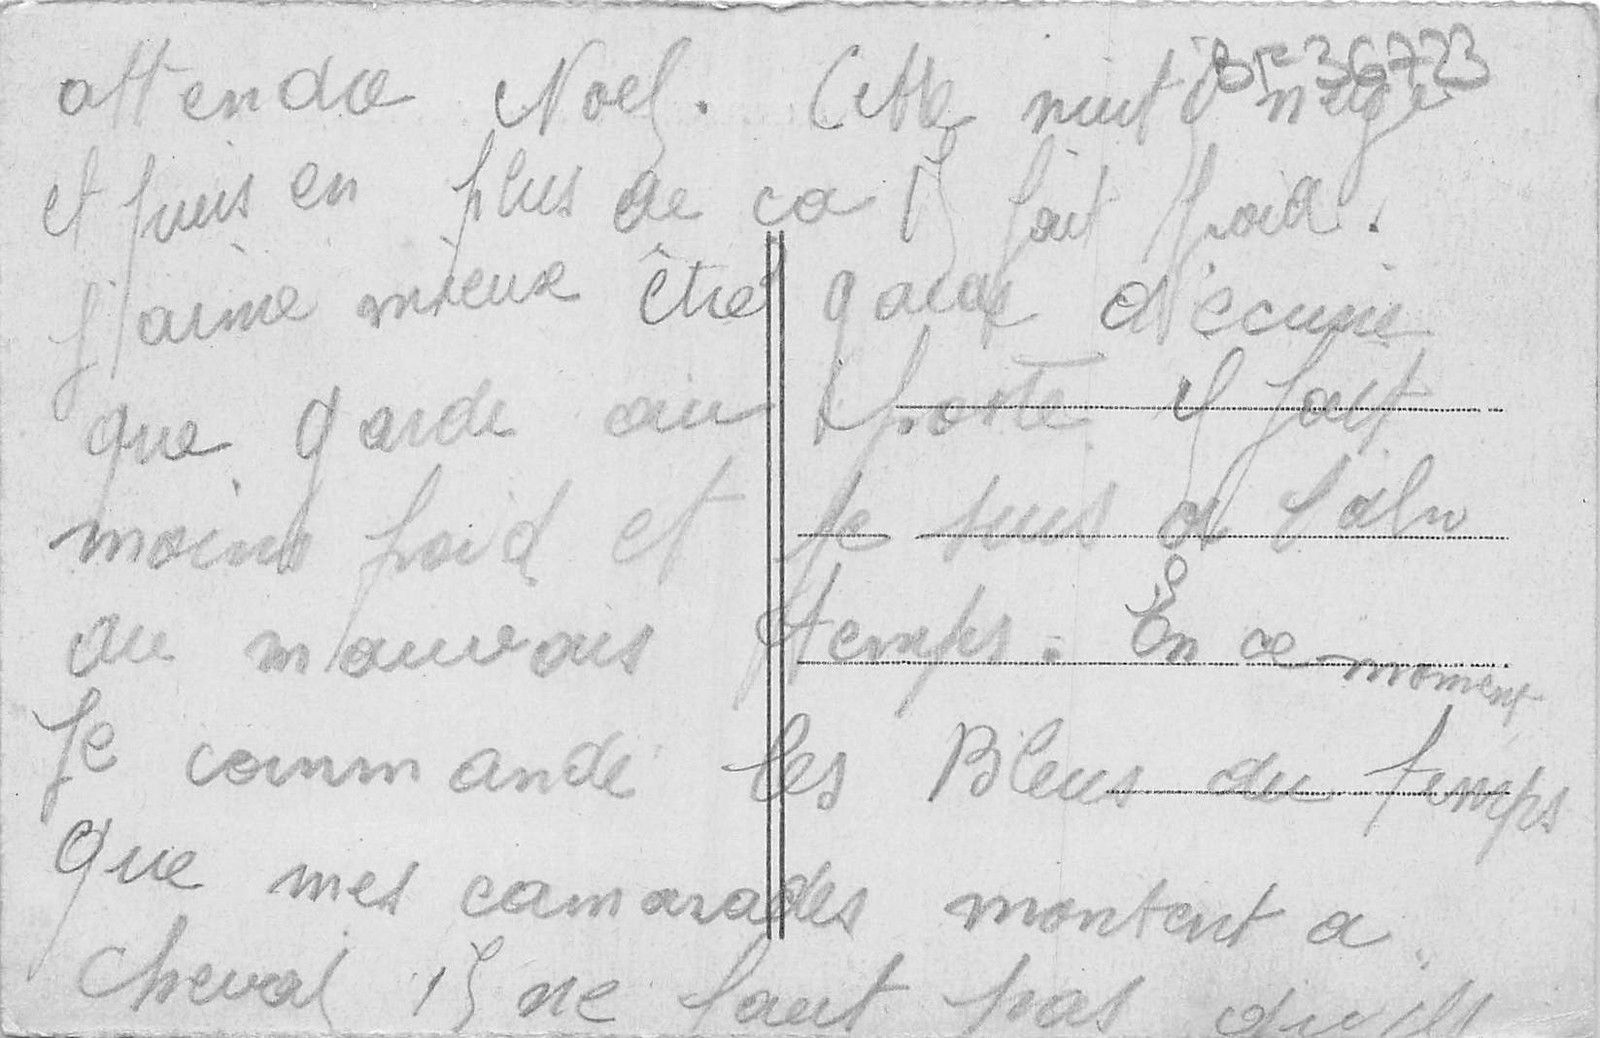 BF 36723
attendre Noel. Cette nuit il neige
et puis en plus de ca il fait froid.
j'aime mieux être garde d'écurie
que garde au poste il fait
moins froid et je suis a l'abri
au mauvais temps. En ce moment
Je commande les Bleus du temps
que mes camarades montent a
cheval il ne faut pas qu'ils